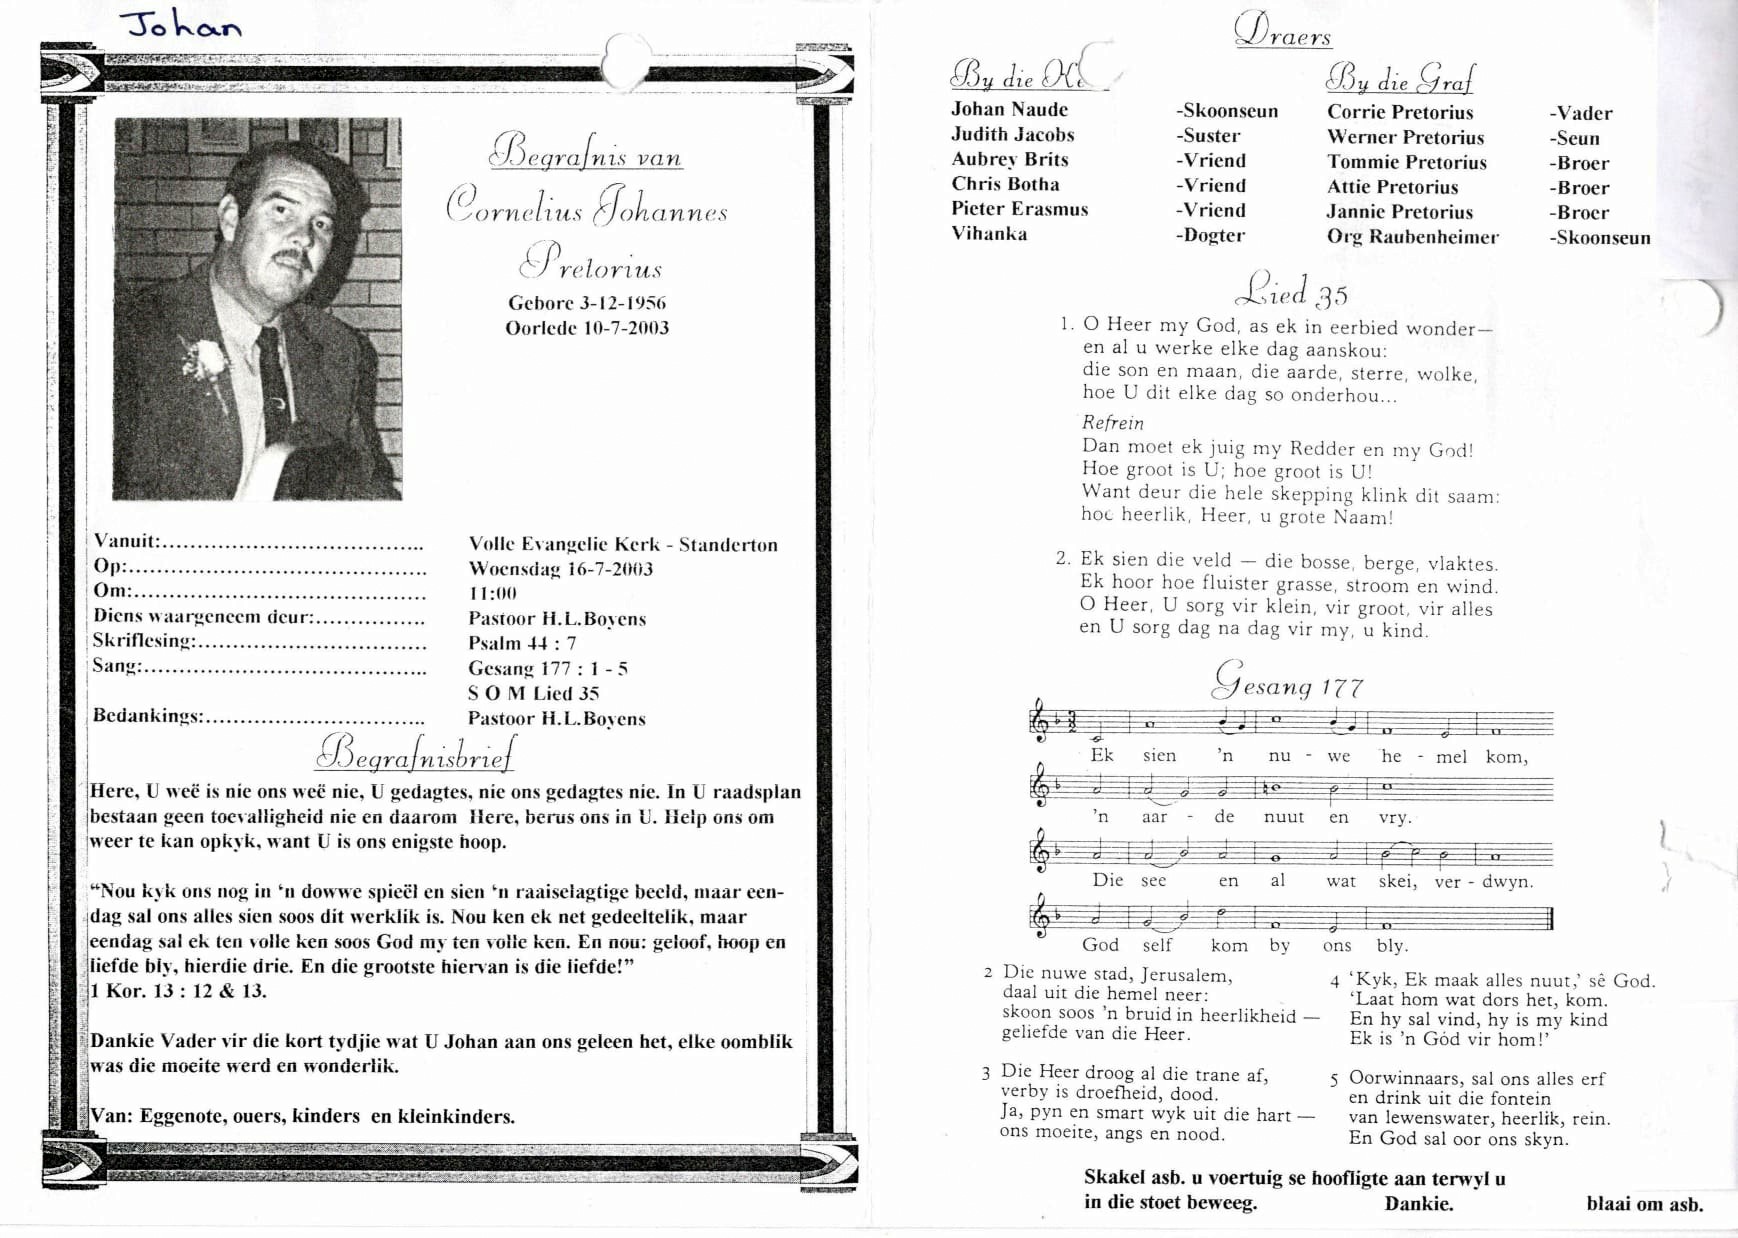 Johan
Begrafnis van
Cornelius Johannes
Pretorius
Gebore 3-12-1956
Oorlede 10-7-2003
Vanuit:..................................... Volle Evangelie Kerk - Standerton
Op:.......................................... Woensdag 16-7-2003
Om:......................................... 11:00
Diens waargeneem deur:................ Pastoor H.L.Boyens
Skriflesing:................................. Psalm 44 : 7
Sang:........................................ Gesang 177 : 1 - 5
S O M Lied 35
Bedankings:............................... Pastoor H.L.Boyens
Begrafnisbrief
Here, U weë is nie ons weë nie, U gedagtes, nie ons gedagtes nie. In U raadsplan
bestaan geen toevalligheid nie en daarom Here, berus ons in U. Help ons om
weer te kan opkyk, want U is ons enigste hoop.
“Nou kyk ons nog in ‘n dowwe spieël en sien ‘n raaiselagtige beeld, maar een-
dag sal ons alles sien soos dit werklik is. Nou ken ek net gedeeltelik, maar
eendag sal ek ten volle ken soos God my ten volle ken. En nou: geloof, hoop en
liefde bly, hierdie drie. En die grootste hiervan is die liefde!”
1 Kor. 13 : 12 & 13.
Dankie Vader vir die kort tydjie wat U Johan aan ons geleen het, elke oomblik
was die moeite werd en wonderlik.
Van: Eggenote, ouers, kinders en kleinkinders.
Draers
By die
Johan Naude -Skoonseun
Judith Jacobs -Suster
Aubrey Brits -Vriend
Chris Botha -Vriend
Pieter Erasmus -Vriend
Vihanka -Dogter
By die Graf
Corrie Pretorius -Vader
Werner Pretorius -Seun
Tommie Pretorius -Broer
Attie Pretorius -Broer
Jannie Pretorius -Broer
Org Raubenheimer -Skoonseun
Lied 35
1. O Heer my God, as ek in eerbied wonder—
en al u werke elke dag aanskou:
die son en maan, die aarde, sterre, wolke,
hoe U dit elke dag so onderhou...
Refrein
Dan moet ek juig my Redder en my God!
Hoe groot is U; hoe groot is U!
Want deur die hele skepping klink dit saam:
hoe heerlik, Heer, u grote Naam!
2. Ek sien die veld — die bosse, berge, vlaktes.
Ek hoor hoe fluister grasse, stroom en wind.
O Heer, U sorg vir klein, vir groot, vir alles
en U sorg dag na dag vir my, u kind.
Gesang 177
Ek sien 'n nu - we he - mel kom,
'n aar - de nuut en vry.
Die see en al wat skei, ver - dwyn.
God self kom by ons bly.
2 Die nuwe stad, Jerusalem,
daal uit die hemel neer:
skoon soos 'n bruid in heerlikheid —
geliefde van die Heer.
3 Die Heer droog al die trane af,
verby is droefheid, dood.
Ja, pyn en smart wyk uit die hart —
ons moeite, angs en nood.
4 ‘Kyk, Ek maak alles nuut,’ sê God.
‘Laat hom wat dors het, kom.
En hy sal vind, hy is my kind
Ek is 'n Gód vir hom!’
5 Oorwinnaars, sal ons alles erf
en drink uit die fontein
van lewenswater, heerlik, rein.
En God sal oor ons skyn.
Skakel asb. u voertuig se hoofligte aan terwyl u
in die stoet beweeg. Dankie. blaai om asb.